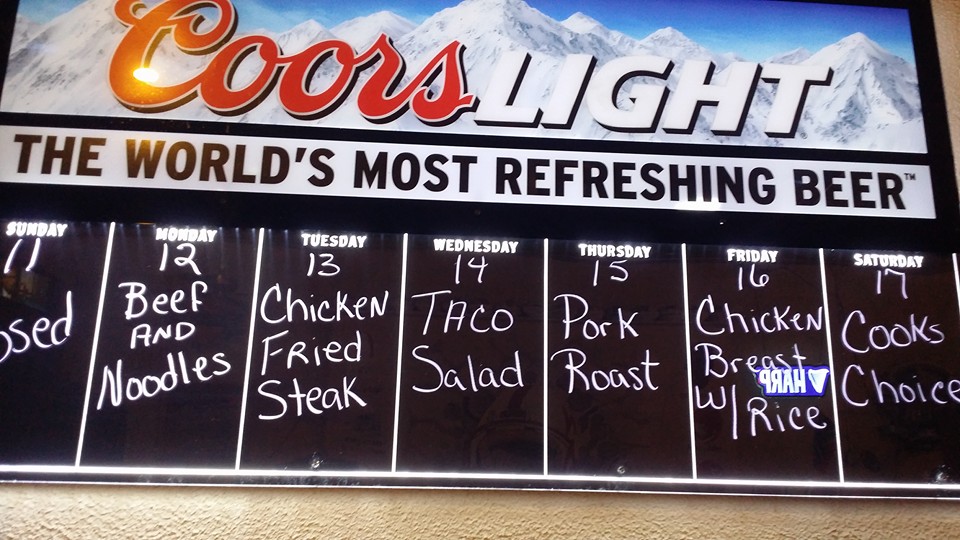 Coors LIGHT
THE WORLD'S MOST REFRESHING BEER™
SUNDAY
11
osed
MONDAY
12
Beef
AND
Noodles
TUESDAY
13
Chicken
Fried
Steak
WEDNESDAY
14
TACO
Salad
THURSDAY
15
Pork
Roast
FRIDAY
16
Chicken
Breast
HARP
W/Rice
SATURDAY
17
Cooks
Choice